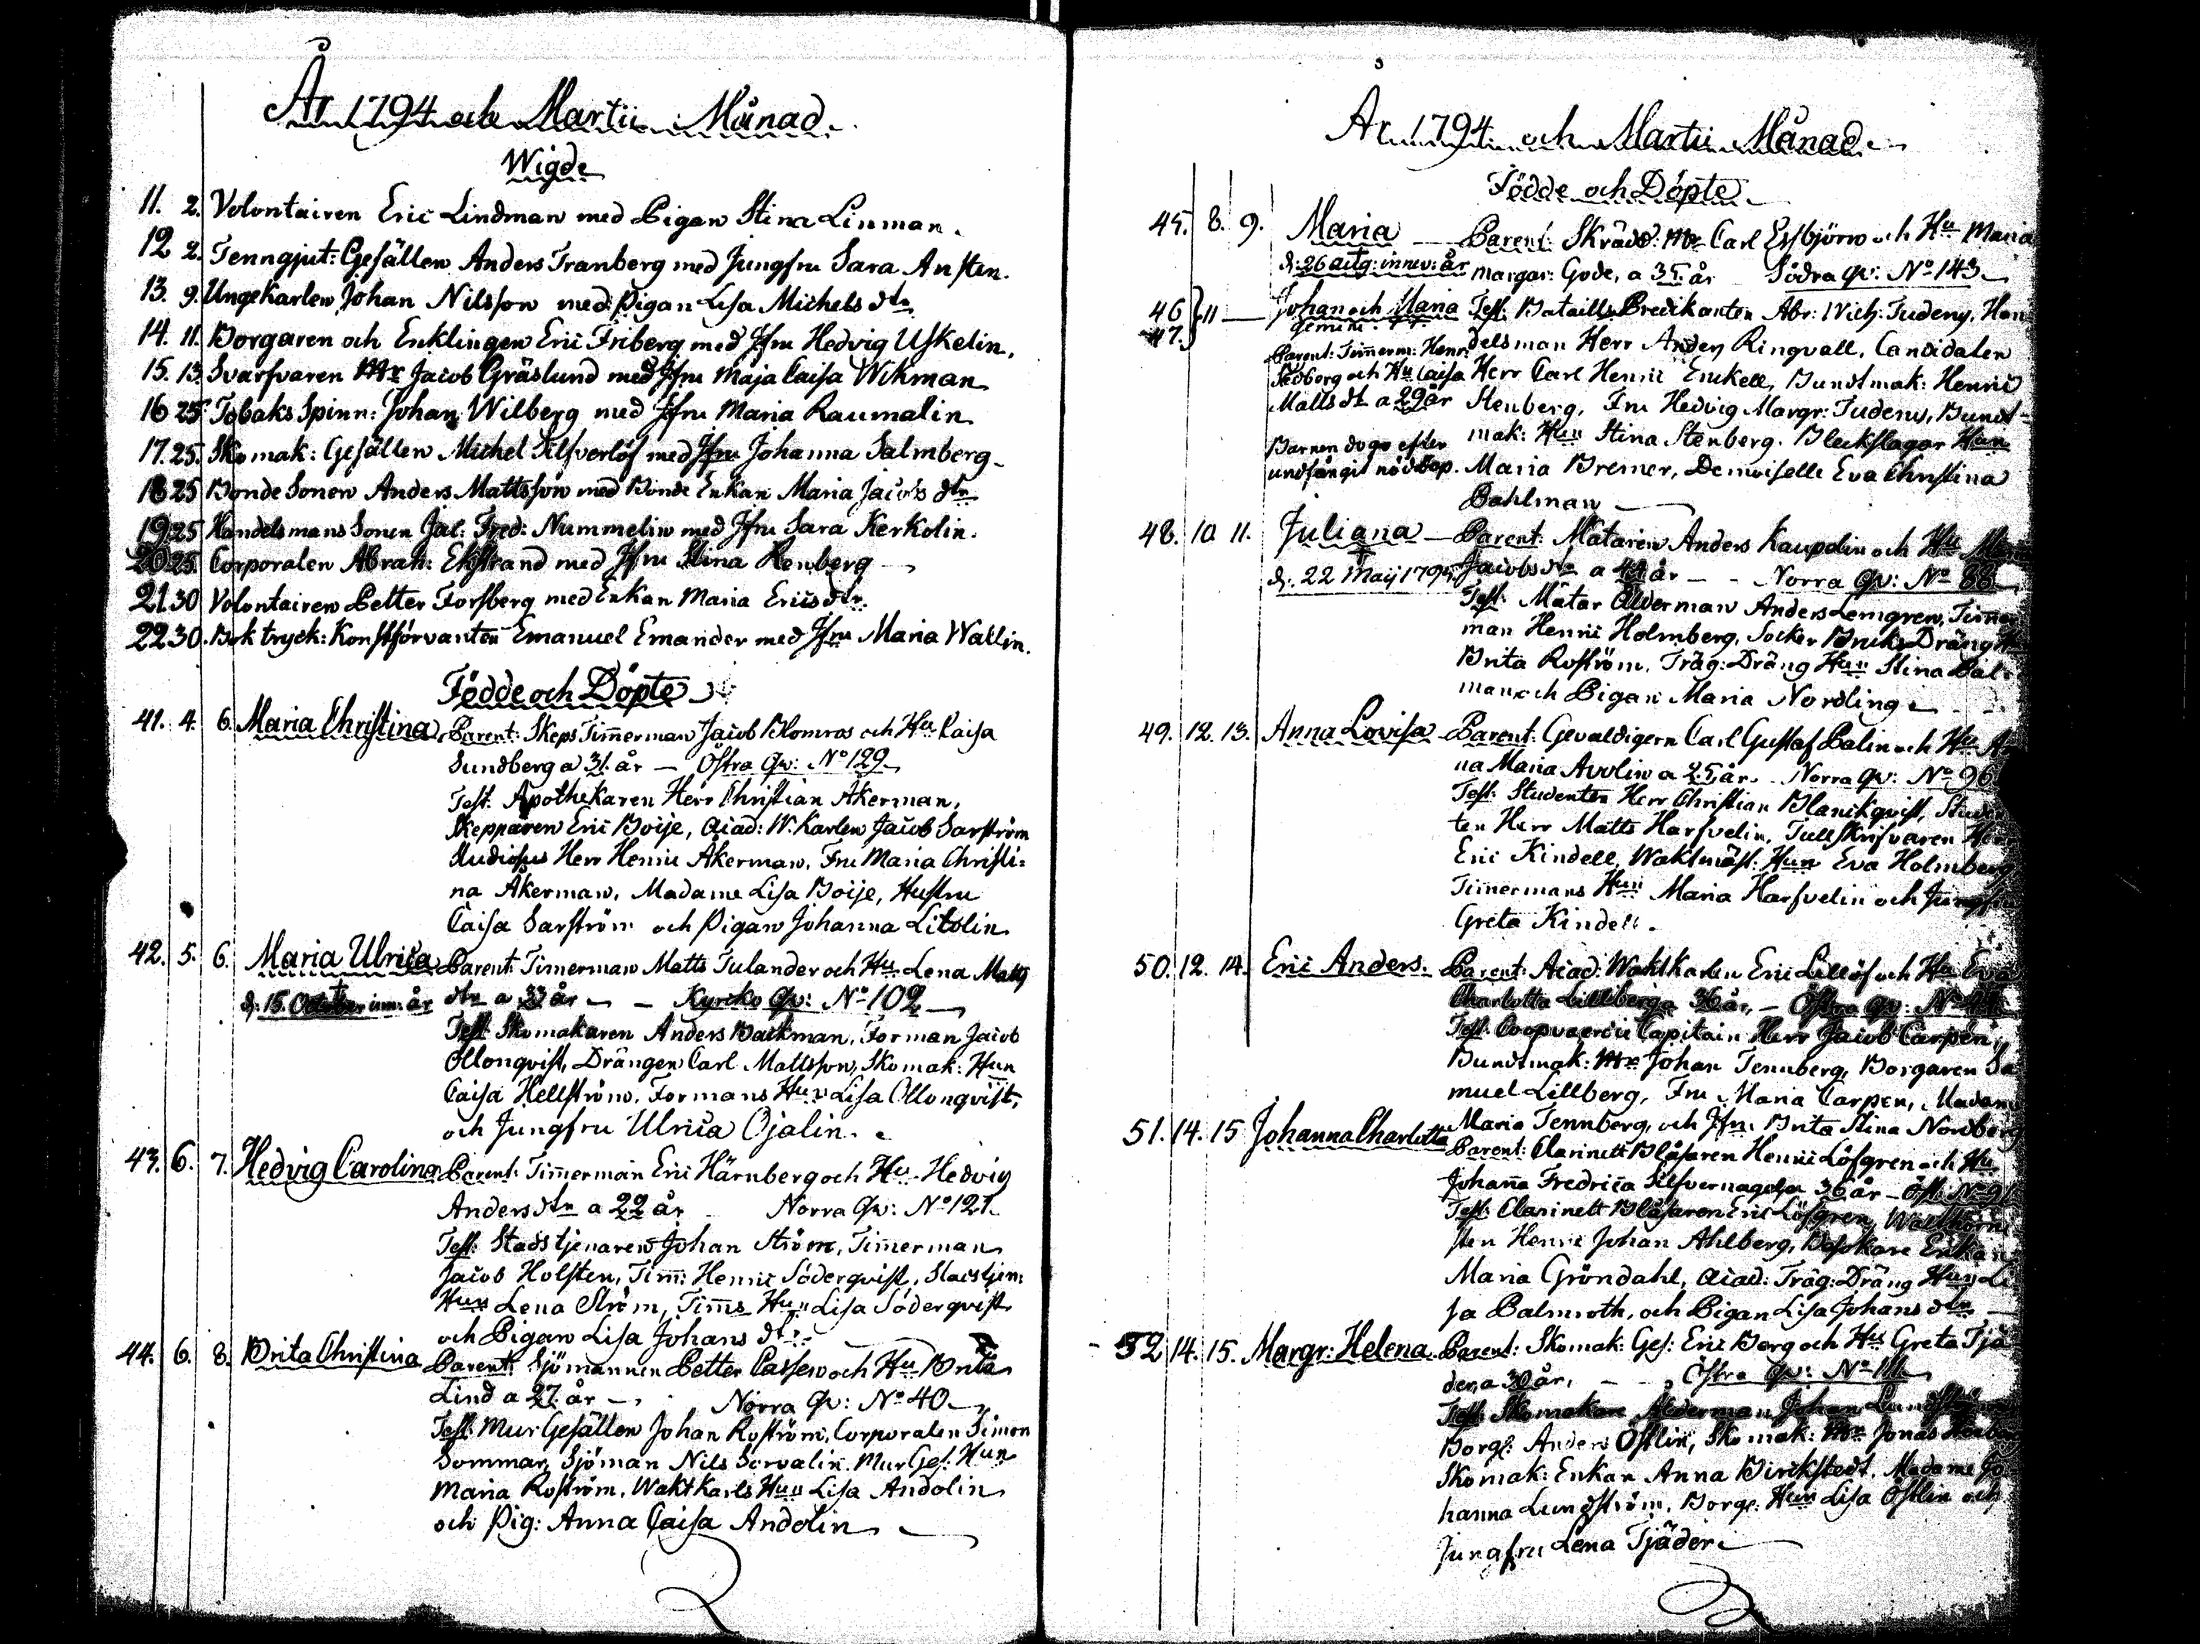 År 1794 och Martii Månad.
Wigde
11. 2. Volontairen Eric Lindman med Pigan Stina Linman.
12 2. Tenngjut: Gesällen Anders Tranberg med Jungfru Sara Ansten.
13. 9. Ungekarlen Johan Nilsson med Pigan Lisa Michels dtr
14. 11. Borgaren och Enklingen Eric Friberg med Jfru Hedvig Uskelin.
15. 13. Svarfvaren Mr Jacob Gräslund med Jfru Maja Caisa Wikman
16 25. Tobaks Spinn: Johan Wilberg med Jfru Maria Raumalin
17. 25. Skomak: Gesällen Michel Silfverlöf med Jfru Johanna Salmberg
18 25 Bonde Sonen Anders Mattsson med Bonde Enkan Maria Jacobs dtr
19 25 Handelsmans Sonen Jac: Fred: Nummelin med Jfru Sara Kerkolin.
20 25. Corporalen Abrah: Ekstrand med Jfru Stina Renberg
21 30 Volontairen Petter Forsberg med Enkan Maria Ericsdtr.
22 30. Boktryck: Konstförvanten Emanuel Emander med Jfru Maria Wallin.
Födde och Döpte
41. 4. 6. Maria Christina Parent: Skeps Timmerman Jacob Blomros och Hu Caisa
Sundberg a 31. år — Östra Qv: No 129
Test: Apothekaren Herr Christian Åkerman,
Skepparen Eric Boije, Acad: W: Karlen Jacob Sarström
Studiosus Herr Henric Åkerman, Fru Maria Christi=
na Åkerman, Madame Lisa Boije, Hustru
Caisa Sarström och Pigan Johanna Litolin
42. 5. 6. Maria Ulrica Parent: Timerman Matts Tulander och Hu Lena Matts
d. 15. October inn: år dtr a 33 år — Kyrko Qv: No 102
Test: Skomakaren Anders Backman, Forman Jacob
Ollonqvist, Drängen Carl Mattsson, Skomak: Hun
Caisa Hellström, Formans Hun Lisa Ollonqvist,
och Jungfru Ulrica Ojalin.
43. 6. 7. Hedvig Carolina Parent: Timmerman Eric Härnberg och Hu Hedvig
Anders dtr a 22 år Norra Qv: No 121
Test: Stadstjenaren Johan Ström, Timmerman
Jacob Holsten, Timm: Henric Söderqvist, Stadstjen:
Hun Lena Ström, Timms Hun Lisa Söderqvist
och Pigan Lisa Johans dtr.
44. 6. 8. Brita Christina Parent: Sjömannen Petter Cassen och Hu Brita
Lind a 27. år — Norra Qv: No 40
Test: Mur Gesällen Johan Roström, Corporalen Simon
Sommar, Sjöman Nils Sorvalin. Mur Ges: Hun
Maria Roström, Wakt Karls Hun Lisa Andolin
och Pig: Anna Caisa Andolin
År 1794. och Martii Månad.
Födde och Döpte
45. 8. 9. Maria Parent: Skrädd: Mr Carl Esbjörn och Hu Maria
d: 26 aug: innev: år Margar: Gode, a 35. år Södra Qv: No 143
46 11 — Johan och Maria Test: Bataills Predikanten Abr: Nich: Tudeny. Han
47. gemini.
delsman Herr Anders Ringvall, Candidaten
Parent: Timerm: Henr:
Sedborg och Hu Caisa Herr Carl Henric Enckell, Bundtmak: Henric
Matts dt a 29 år Stenberg, Fru Hedvig Margr: Tudeny, Bundt-
mak: Hun Stina Stenberg. Bleckslagar Hun
Barnen dogo efter
undfångit nöddop. Maria Bremer, Demoiselle Eva Christina
Bahlman
48. 10 11. Juliana Parent: Mätaren Anders Kaupolin och Hu
d. 22 Maij 1794. Jacobs dtr a 44 år — Norra Qv: No 88
Test: Mätar Ålderman Anders Lemgren, Timer
man Henric Holmberg, Socker Bruks Dräng
Brita Roström, Träg: Dräng Hun Stina
man och Pigan Maria Nordling
49. 12. 13. Anna Lovisa Parent: Gevaldigern Carl Gustaf Palin och Hu An
na Maria Avolin a 25. år. Norra Qv: No 96
Test: Studenten Herr Christian Blanckqvist, Studen
ten Herr Matts Harfvelin, Tullskrifvaren Herr
Eric Kindell, Waktmäst: Hun Eva Holmberg
Timermans Hun Maria Harfvelin och Jungfru
Greta Kindell.
50. 12. 14. Eric Anders. Parent: Acad: Waktkarlen Eric Lillöf och Hu Eva
Charlotta Lillberg a 36 år, — Östra Qv: No
Test: Coopvaerdie Capitain Herr Jacob Carpen,
Bundtmak: Mr Johan Tennberg, Borgaren Sa
muel Lillberg, Fru Maria Carpen, Madam
Maria Tennberg, och Jfru Brita Stina Nordberg
51. 14. 15 Johanna Charlotta Parent: Clarinett Blåsaren Henric Löfgren och Hu
Johanna Fredrica Silfvernagel a 36 år — Öst: No 91
Test: Clarinett Blåsaren Eric Löfgren, Walthorni
sten Henric Johan Ahlberg, Besökare Enkan
Maria Gröndahl, Acad: Träg: Dräng Hun Li
sa Balmroth, och Pigan Lisa Johans dtr
52 14. 15. Margr: Helena Parent: Skomak: Ges: Eric Borg och Hu Greta Tjä
der, a 30 år. — Östra Qv: No 111
Test: Skomakare Ålderman Johan Lundström
Borg: Anders Östlin, Skomak: Mr Jonas
Skomak: Enkan Anna Birckstedt, Madame Jo
hanna Lundström, Borg: Hun Lisa Östlin och
Jungfru Lena Tjäder